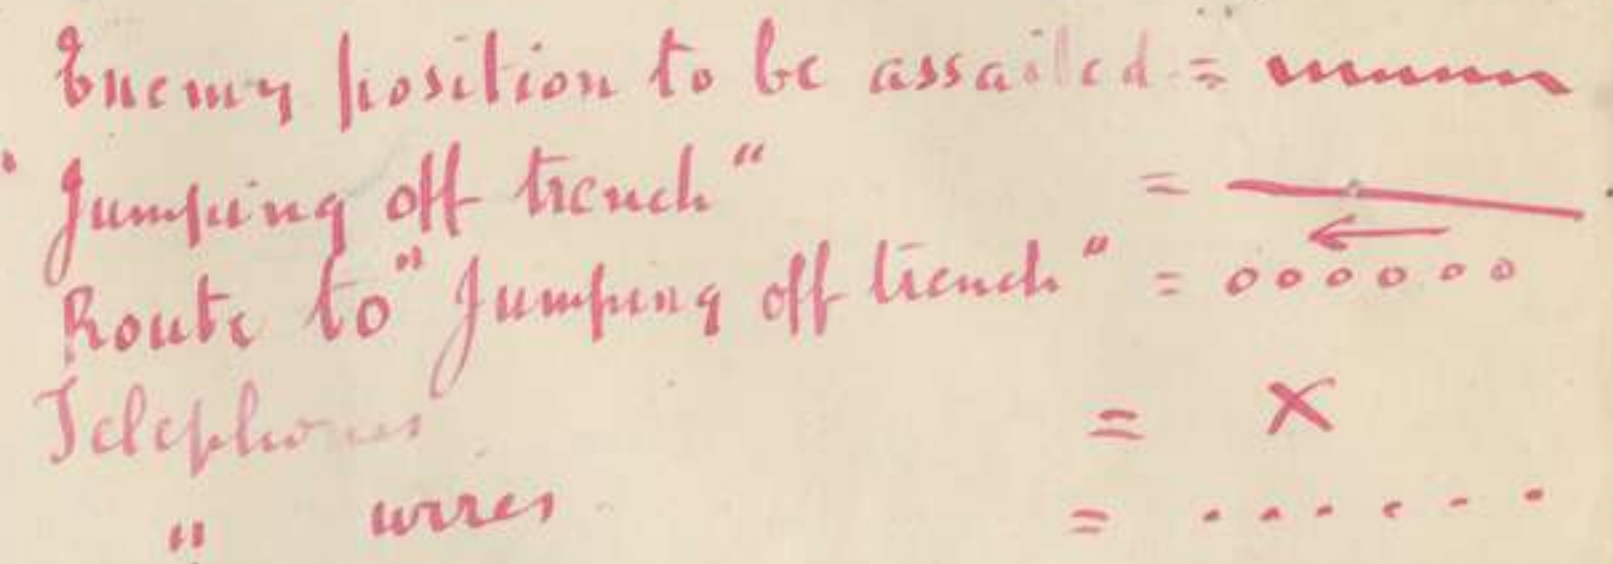 Enemy position to be assailed =
"Jumping off trench" =
Route to "Jumping off trench" = o o o o o o
Telephones = X
" wires = . . . . . .